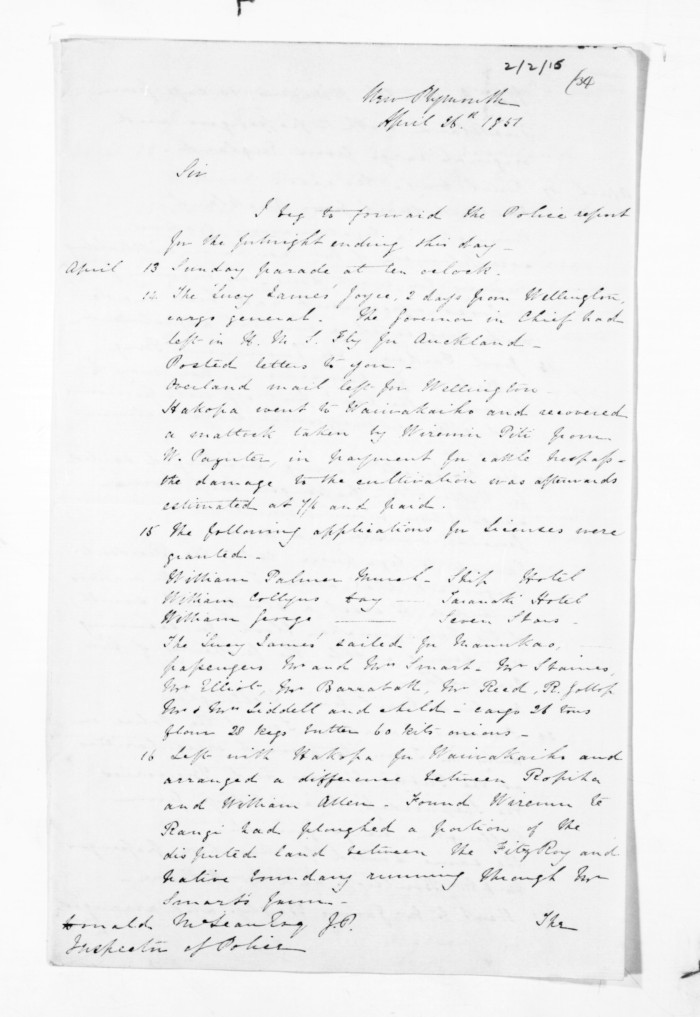 2/2/15
New Plymouth
April 26.th 1851
Sir
I beg to forward the Police report
for the fortnight ending this day -
April 13 Sunday parade at ten oclock.
14 The 'Lucy James' Joyce, 2 days from Wellington,
cargo general. The Governor in Chief had
left in H. M. S. Fly for Auckland -
Posted letters to you -
Overland mail left for Wellington -
Hakopa went to Waiwakaiho and recovered
a mattock taken by Wiremu Piti from
W. Paynter, in payment for cattle trespass -
the damage to the cultivation was afterwards
estimated at 7/6 and paid.
15 The following applications for Licenses were
granted -
William Palmer - Ship Hotel
William Collyns - Taranaki Hotel
William George - Seven Stars -
The 'Lucy James' sailed for Manukao,
passengers Mr and Mrs Smart - Mr Staines,
Mr Elliot, Mr Mr Reed, R. Gollop
Mr & Mrs Liddell and child - cargo 26 tons
flour 28 kegs butter 60 kits onions -
16 Left with Hakopa for Waiwakaiho and
arranged a difference between Ropiha
and William Allen - Found Wiremu te
Rangi had ploughed a portion of the
disputed land between the FitzRoy and
Native boundary running through Mr
Smart's farm -
Donald McLean Esq J.P. The
Inspector of Police